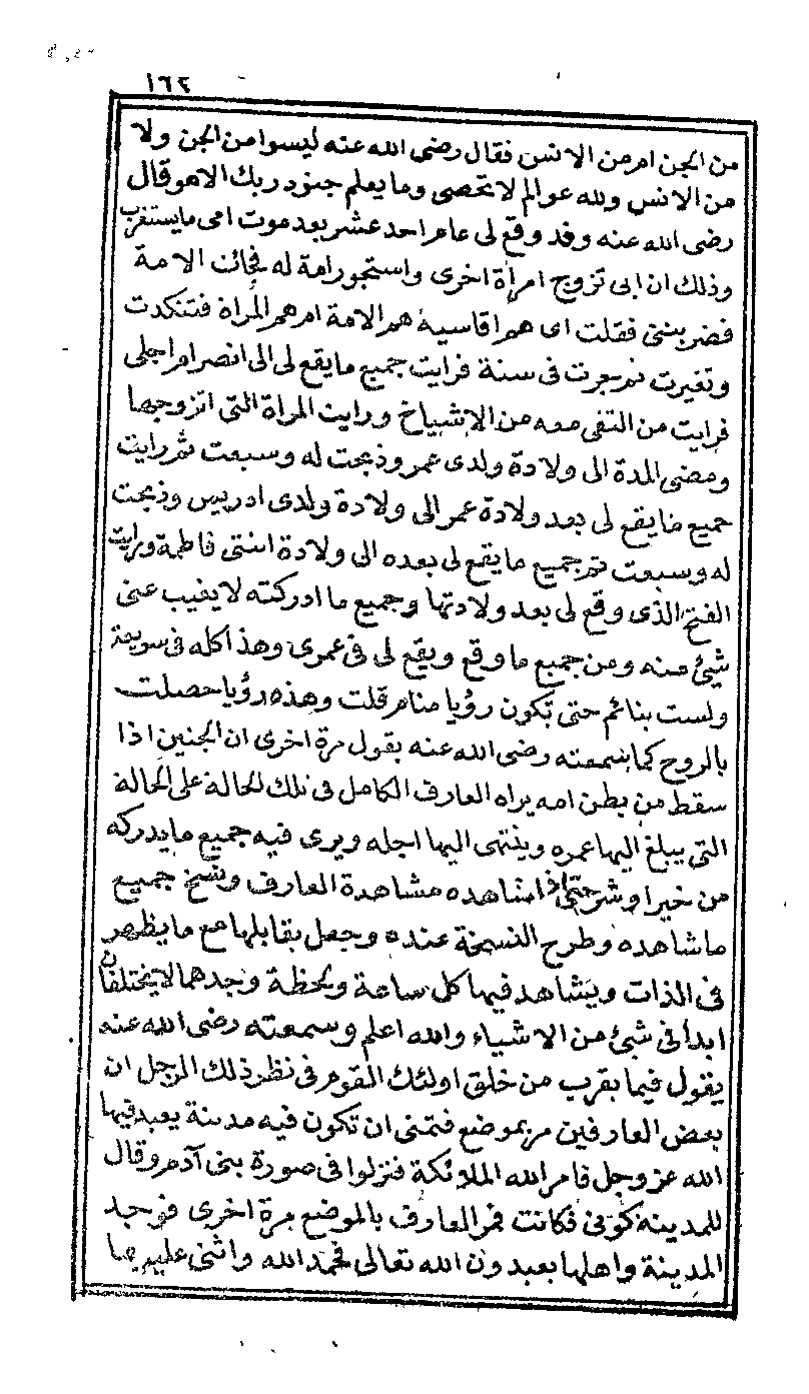 ١٦٢
من الجن ام من الانس فقال رضى الله عنه ليسوا من الجن ولا
من الانس ولله عوالم لا تحصى وما يعلم جنود ربك الا هو وقال
رضى الله عنه وقد وقع لى عام احد عشر بعد موت امى ما يستغرب
وذلك ان ابى تزوج امرأة اخرى واستجور امة له فجائت الامة
فضربتنى فقلت اى هم اقاسيه هم الامة ام هم المراة فتنكدت
وتغيرت ثم سجرت فى سنة فرايت جميع ما يقع لى الى انصرام اجلى
فرايت من التقى معه من الاشياخ ورايت المراة التى اتزوجها
ومضى المدة الى ولادة ولدى عمر وذبحت له وسبعت ثم رايت
جميع ما يقع لى بعد ولادة عمر الى ولادة ولدى ادريس وذبحت
له وسبعت ثم جميع ما يقع لى بعده الى ولادة ابنتى فاطمة ورايت
الفتح الذى وقع لى بعد ولادتها وجميع ما ادركته لا يغيب عنى
شئ منه ومن جميع ما وقع ويقع لى فى عمرى وهذا كله فى سويعة
ولست بنائم حتى تكون رؤيا منام قلت وهذه رؤيا حصلت
بالروح كما سمعته رضى الله عنه يقول مرة اخرى ان الجنين اذا
سقط من بطن امه يراه العارف الكامل فى تلك الحالة على الحالة
التى يبلغ اليها عمره وينتهى اليها اجله ويرى فيه جميع ما يدركه
من خير او شر حتى اذا شاهده مشاهدة العارف ونسخ جميع
ما شاهده وطرح النسخة عنده وجعل يقابلها مع ما يظهر
فى الذات ويشاهد فيها كل ساعة ولحظة وجدهما لا يختلفان
ابدا فى شئ من الاشياء والله اعلم وسمعته رضى الله عنه
يقول فيما يقرب من خلق اولئك القوم فى نظر ذلك الرجل ان
بعض العارفين مر بموضع فتمنى ان تكون فيه مدينة يعبد فيها
الله عز وجل فامر الله الملائكة فنزلوا فى صورة بنى آدم وقال
للمدينة كونى فكانت فمر العارف بالموضع مرة اخرى فوجد
المدينة واهلها يعبدون الله تعالى فحمد الله واثنى عليه بما